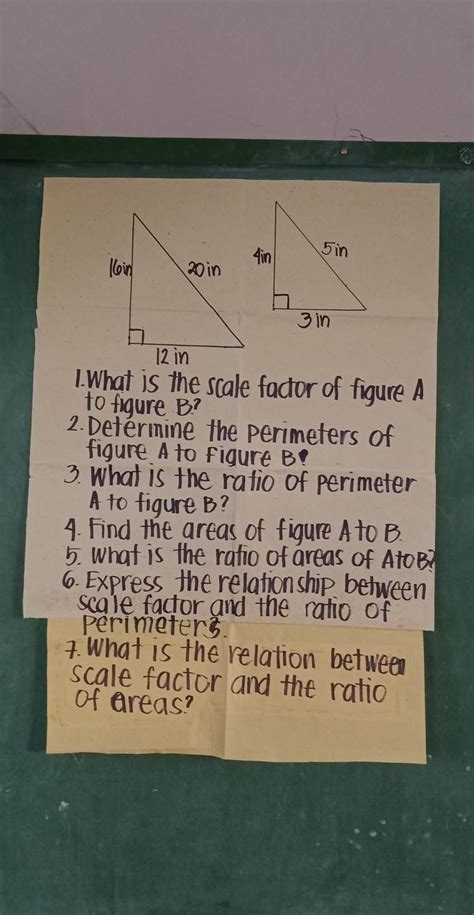 16in
20in
12 in
4in
5in
3 in
1. What is the scale factor of figure A
to figure B?
2. Determine the perimeters of
figure A to Figure B!
3. What is the ratio of perimeter
A to figure B?
4. Find the areas of figure A to B.
5. What is the ratio of areas of A to B?
6. Express the relationship between
scale factor and the ratio of
perimeters.
7. What is the relation between
scale factor and the ratio
of areas?